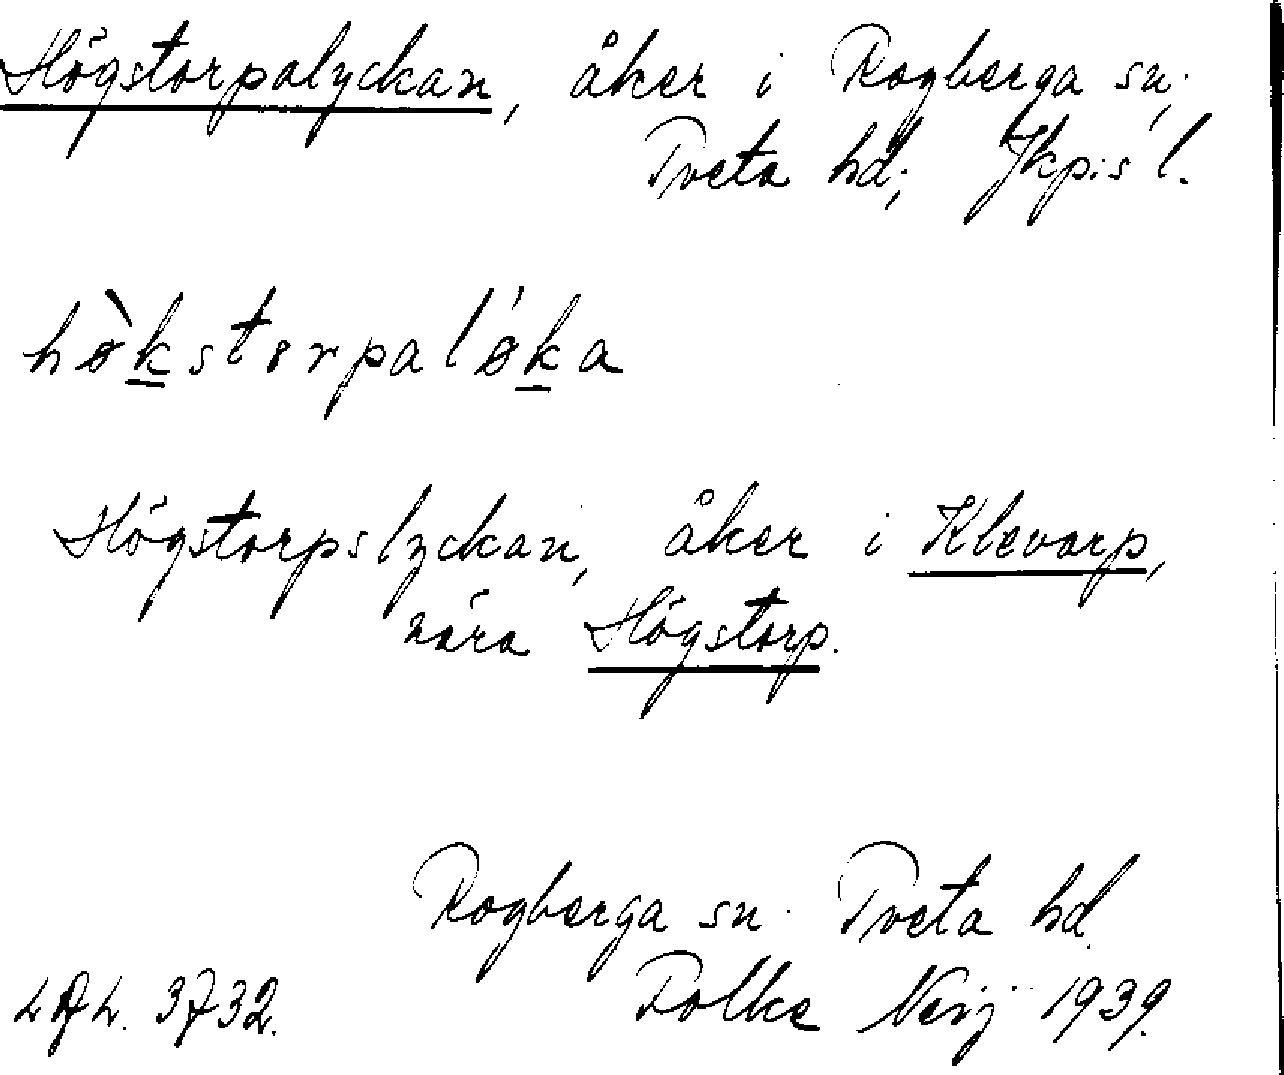 Högstorpalyckan, åker i Rogberga sn.
Tveta hd; Jkpis l.
hø̀kstorpaløka
Högstorpslyckan, åker i Klevarp,
nära Högstorp.
Rogberga sn. Tveta hd.
Folke Neij 1939.